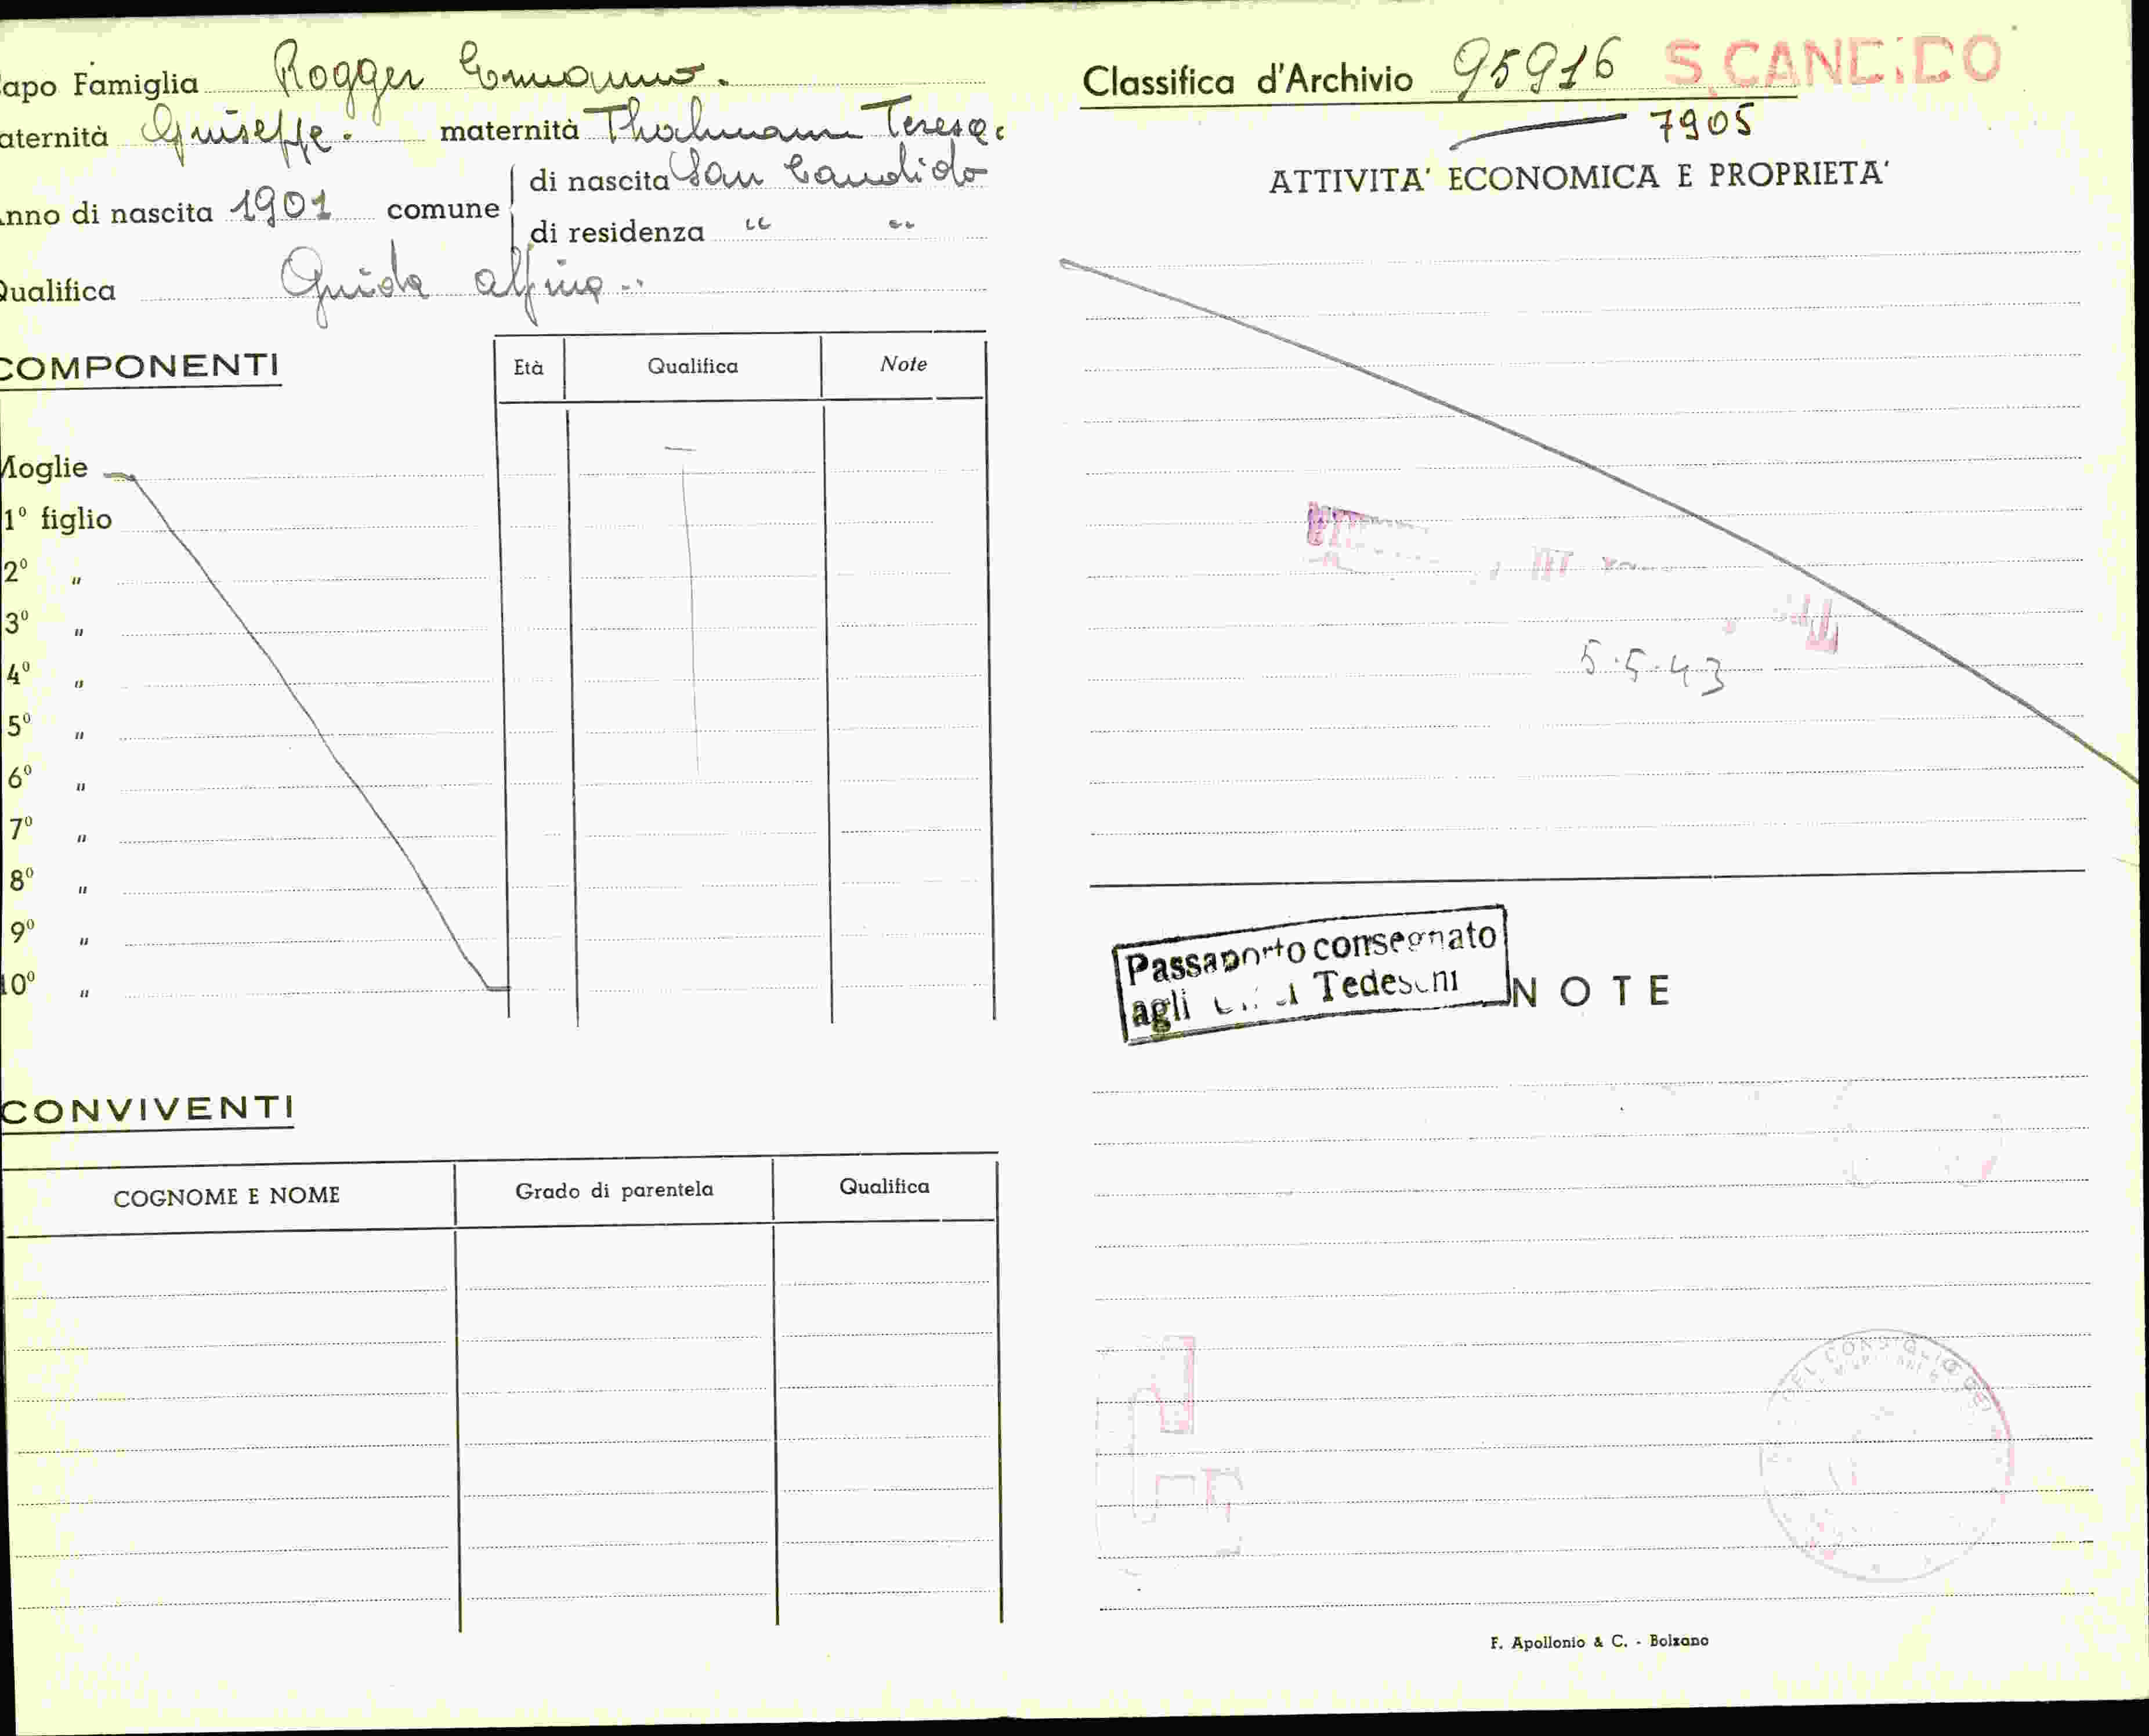 apo Famiglia Rogger Ermanno.
aternità Giuseppe. maternità Thalmann Teresa
nno di nascita 1901 comune
di nascita San Candido
di residenza " "
Qualifica Guida alpina
COMPONENTI
Età Qualifica Note
Moglie
1º figlio
2º "
3º "
4º "
5º "
6º "
7º "
8º "
9º "
10º "
CONVIVENTI
COGNOME E NOME Grado di parentela Qualifica
Classifica d'Archivio 95916 S. CANDIDO
7905
ATTIVITA' ECONOMICA E PROPRIETA'
5.5.43
Passaporto consegnato
agli Tedeschi
NOTE
DEL CONSIGLIO DEI
F. Apollonio & C. - Bolzano